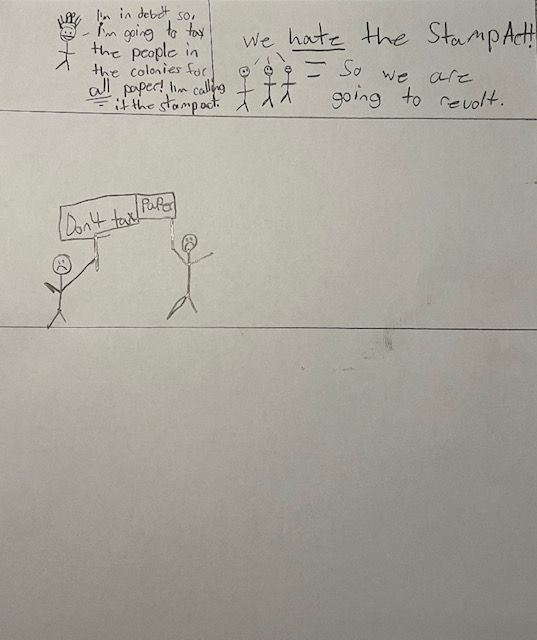 I'm in debet so,
I'm going to tax
the people in
the colonies for
all paper! I'm calling
it the stampact.
we hate the StampAct!
So we are
going to revolt.
Don4 tax
PaPer